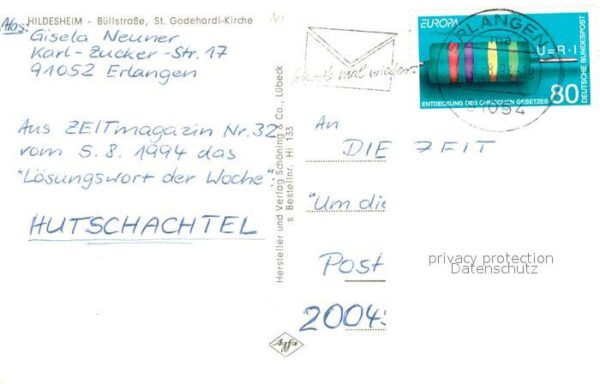 HILDESHEIM - Büllstraße, St. Godehardi-Kirche
Abs:
Gisela Neuner
Karl-Zucker-Str. 17
91052 Erlangen
Aus ZEITmagazin Nr. 32
vom 5.8.1994 das
"Lösungswort der Woche":
HUTSCHACHTEL
Hersteller und Verlag Schöning & Co., Lübeck
s Bestellnr. Hi 133
Agfa
Schreib mal wieder.
ERLANGEN
91054
EUROPA
U=R·I
ENTDECKUNG DES OHMSCHEN GESETZES
80
DEUTSCHE BUNDESPOST
An
DIE ZEIT
"Um die
Post
2004
privacy protection
Datenschutz